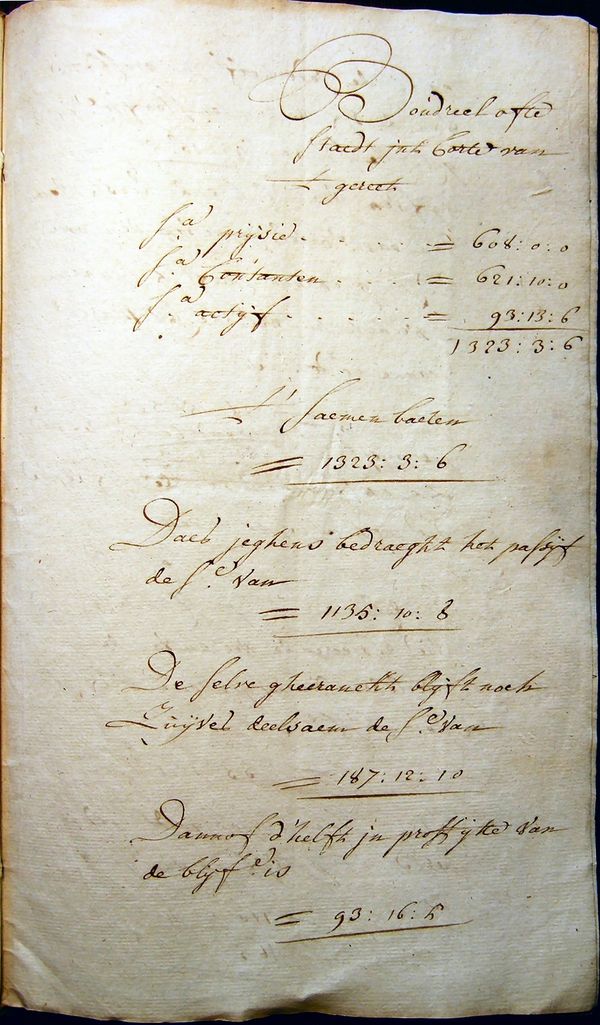 Boudreel ofte
staedt int Corte van
't gereet
Sa prijsie . . . . . = 608: 0: 0
Sa Contanten . . . . = 621: 10: 0
Sa actijf . . . . . . = 93: 13: 6
1323: 3: 6
t' saemen baeten
= 1323: 3: 6
Daer jeghens bedraeght het passijf
de Se. van
= 1135: 10: 8
De selve gheeranckt blijft noch
Zuijver deelsaem de Se. van
= 187: 12: 10
Dannof d'helft in proffijtte van
de blijfe. is
= 93: 16: 5